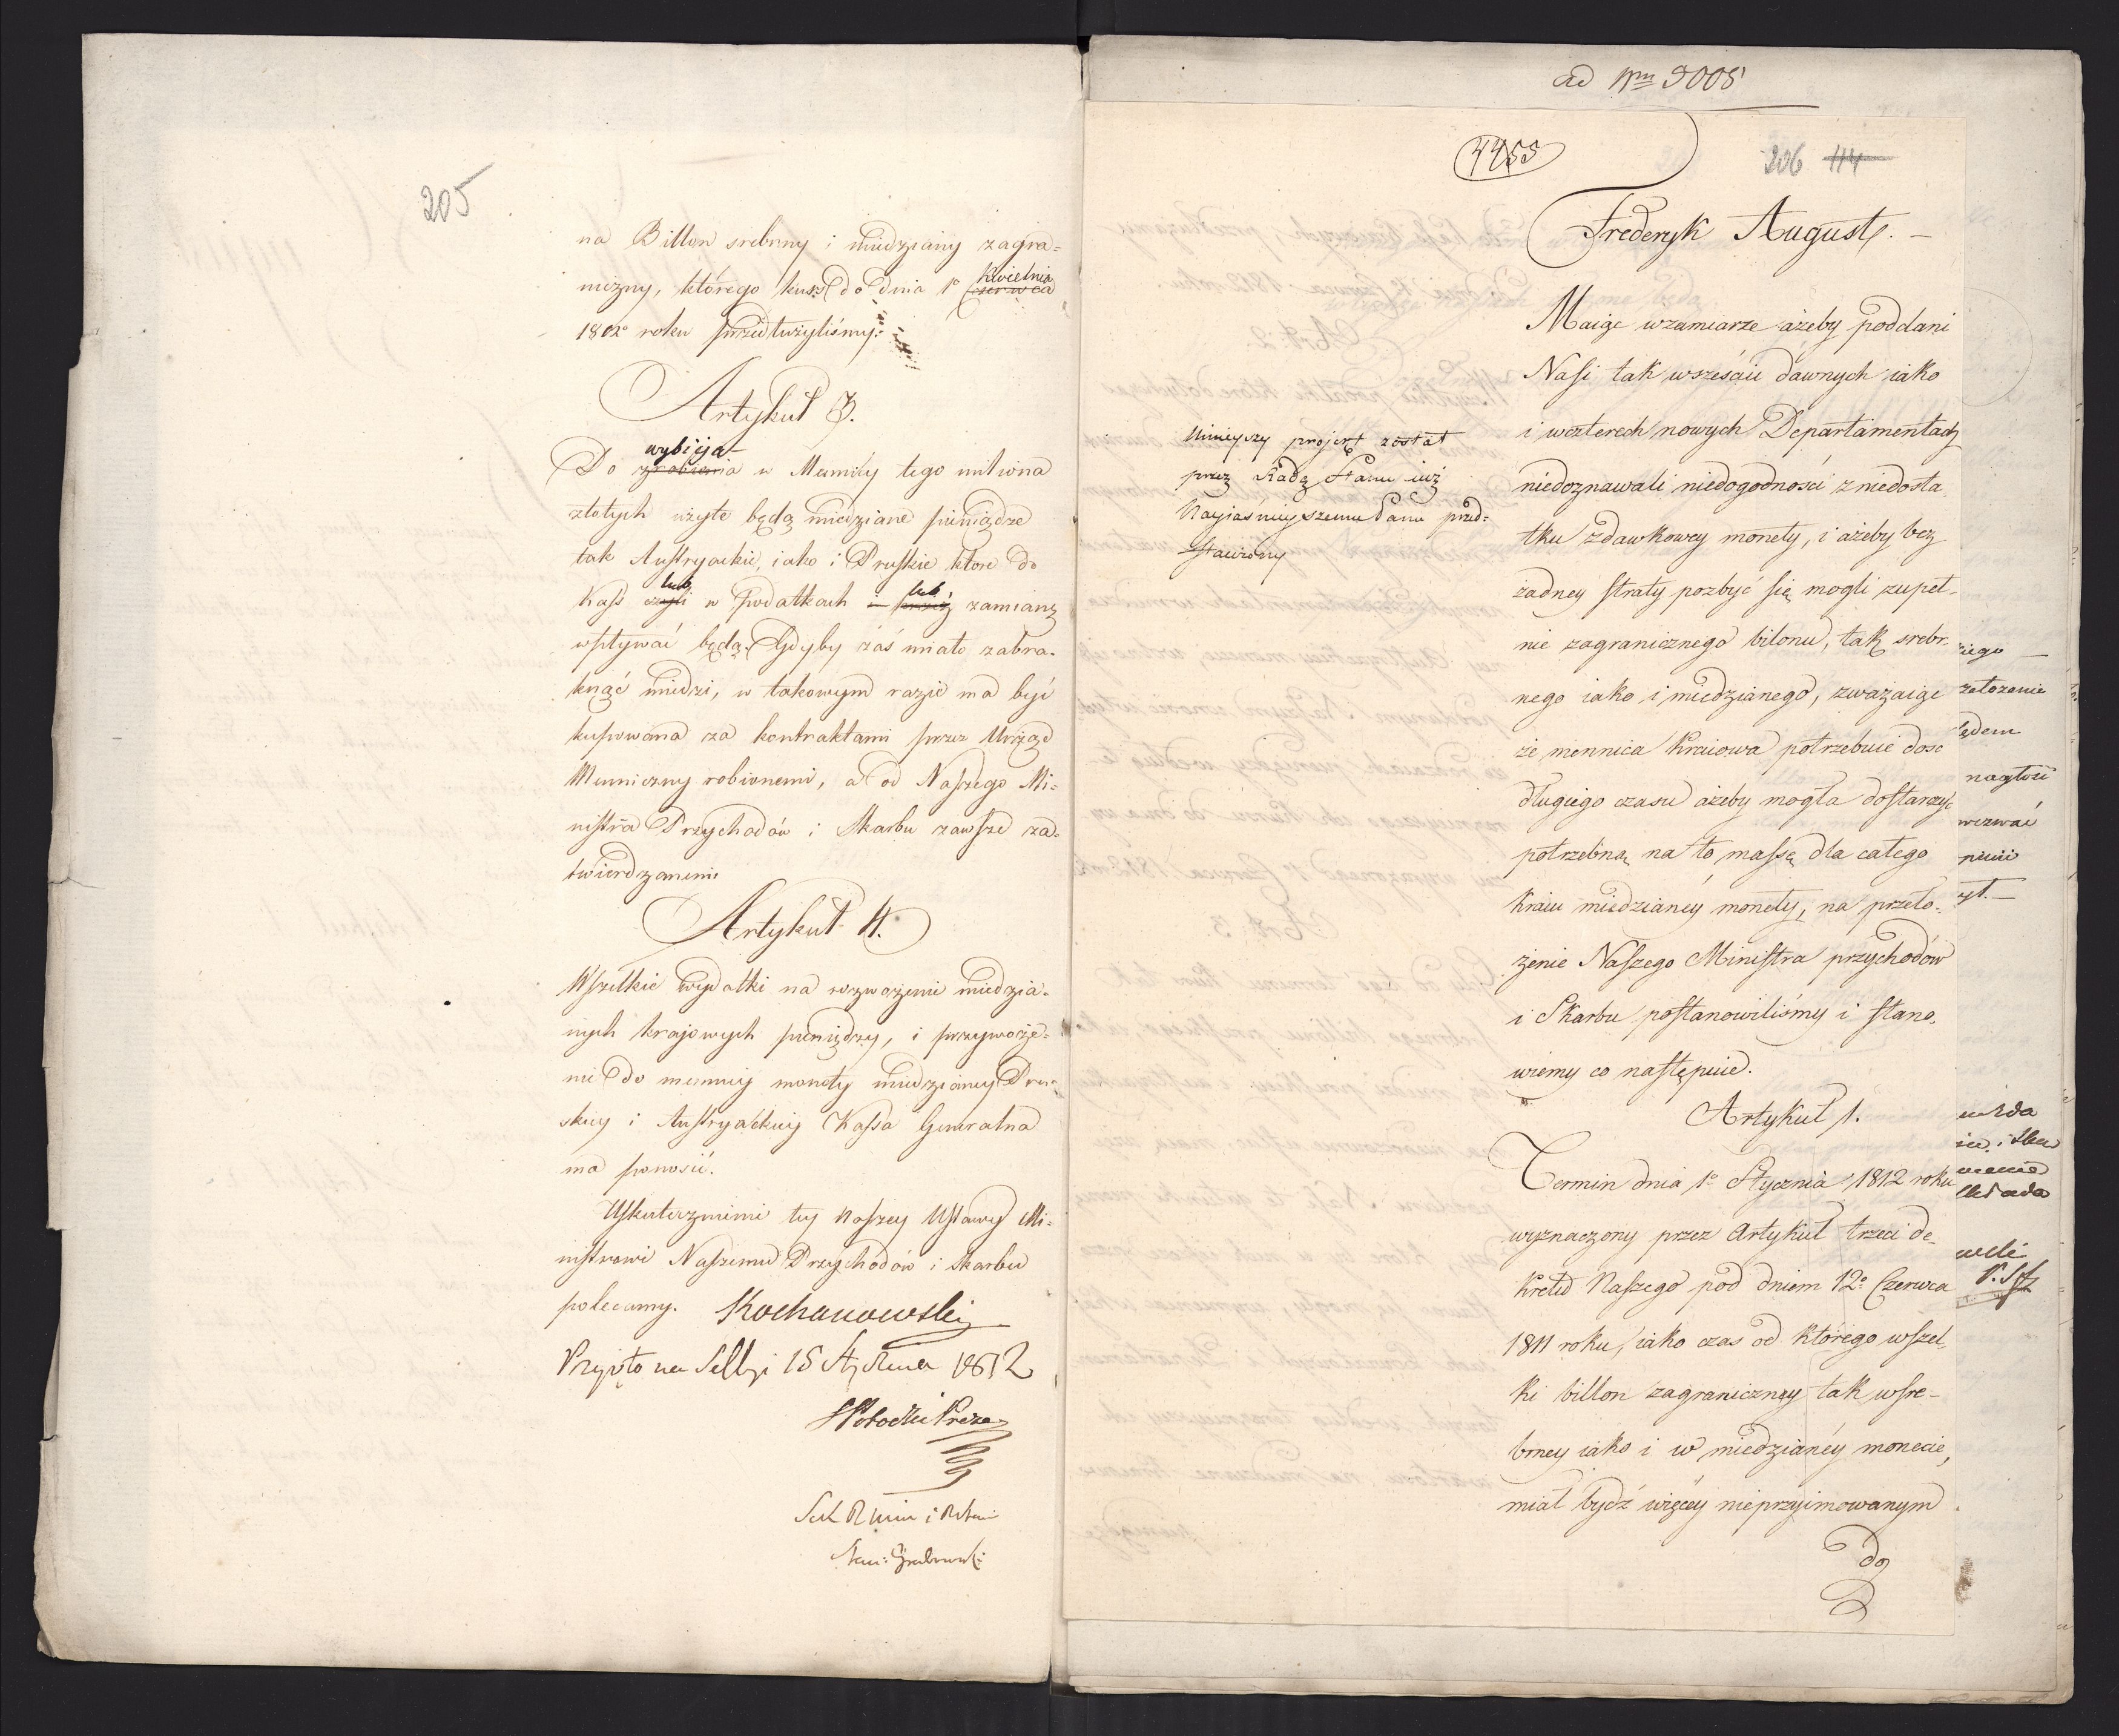 205
na Billon srebrny i miedziany zagra=
niczny, którego kurs do dnia 1º Czerwca Kwietnia
1812º roku przedłużyliśmy.
Artykuł 3.
Do zrobienia wybicia w Mennicy tego miliona
złotych użyte będą miedziane pieniądze
tak Austryackie, iako i Pruskie które do
Kass czyli lub w podatkach i przez lub zamianę
wpływać będą. Gdyby zaś miało zabra=
knąć miedzi, w takowym razie ma być
kupowana za kontraktami przez Urząd
Menniczny robionemi, a od Naszego Mi=
nistra Przychodów i Skarbu zawsze za=
twierdzanemi
Artykuł 4.
Wszelkie wydatki na rozwożenie miedzia=
nych krajowych pieniędzy, i przywoże=
nie do mennicy monety miedzianey Pru=
skiey i Austryackiey Kassa Generalna
ma ponosić.
Uskutecznienie tey naszey Ustawy Mi=
nistrowi Naszemu Przychodów i Skarbu
polecamy. Kochanowski
Przyięto na Sessyi 15 Stycznia 1812
S Potocki Prezes
Sek R
Stan: Grabowski
ad Nrm 9005
4455
206 114
Frederyk August. —
Maiąc wzamiarze ażeby poddani
Nasi tak wsześciu dawnych iako
i wczterech nowych Departamentach
niedoznawali niedogodności zniedosta=
tku zdawkowey monety, i ażeby bez
żadney straty pozbyć się mogli zupeł=
nie zagranicznego bilonu, tak srebr=
nego iako i miedzianego, zważaiąc
że mennica kraiowa potrzebuie dosc
długiego czasu ażeby mogła dostarczyć
potrzebną na to massę dla całego
kraiu miedzianéy monety, na przeło=
żenie Naszego Ministra przychodów
i Skarbu postanowiliśmy i stano=
wiemy co następuie.
Artykuł 1.
Termin dnia 1º Stycznia 1812 roku
wyznaczony przez Artykuł trzeci de=
kretu Naszego pod dniem 12º Czerwca
1811 roku, iako czas od którego wszel=
ki billon zagraniczny tak wsre=
brney iako i w miedzianéy monecie,
miał bydź więcéy nieprzyimowanym
do
Ninieyszy projekt został
przez Radę Stanu iuż
Nayiaśnieyszemu Panu przed=
stawiony
ęiego —
załozenie
ędem
nagłość
wezwać
yt. —